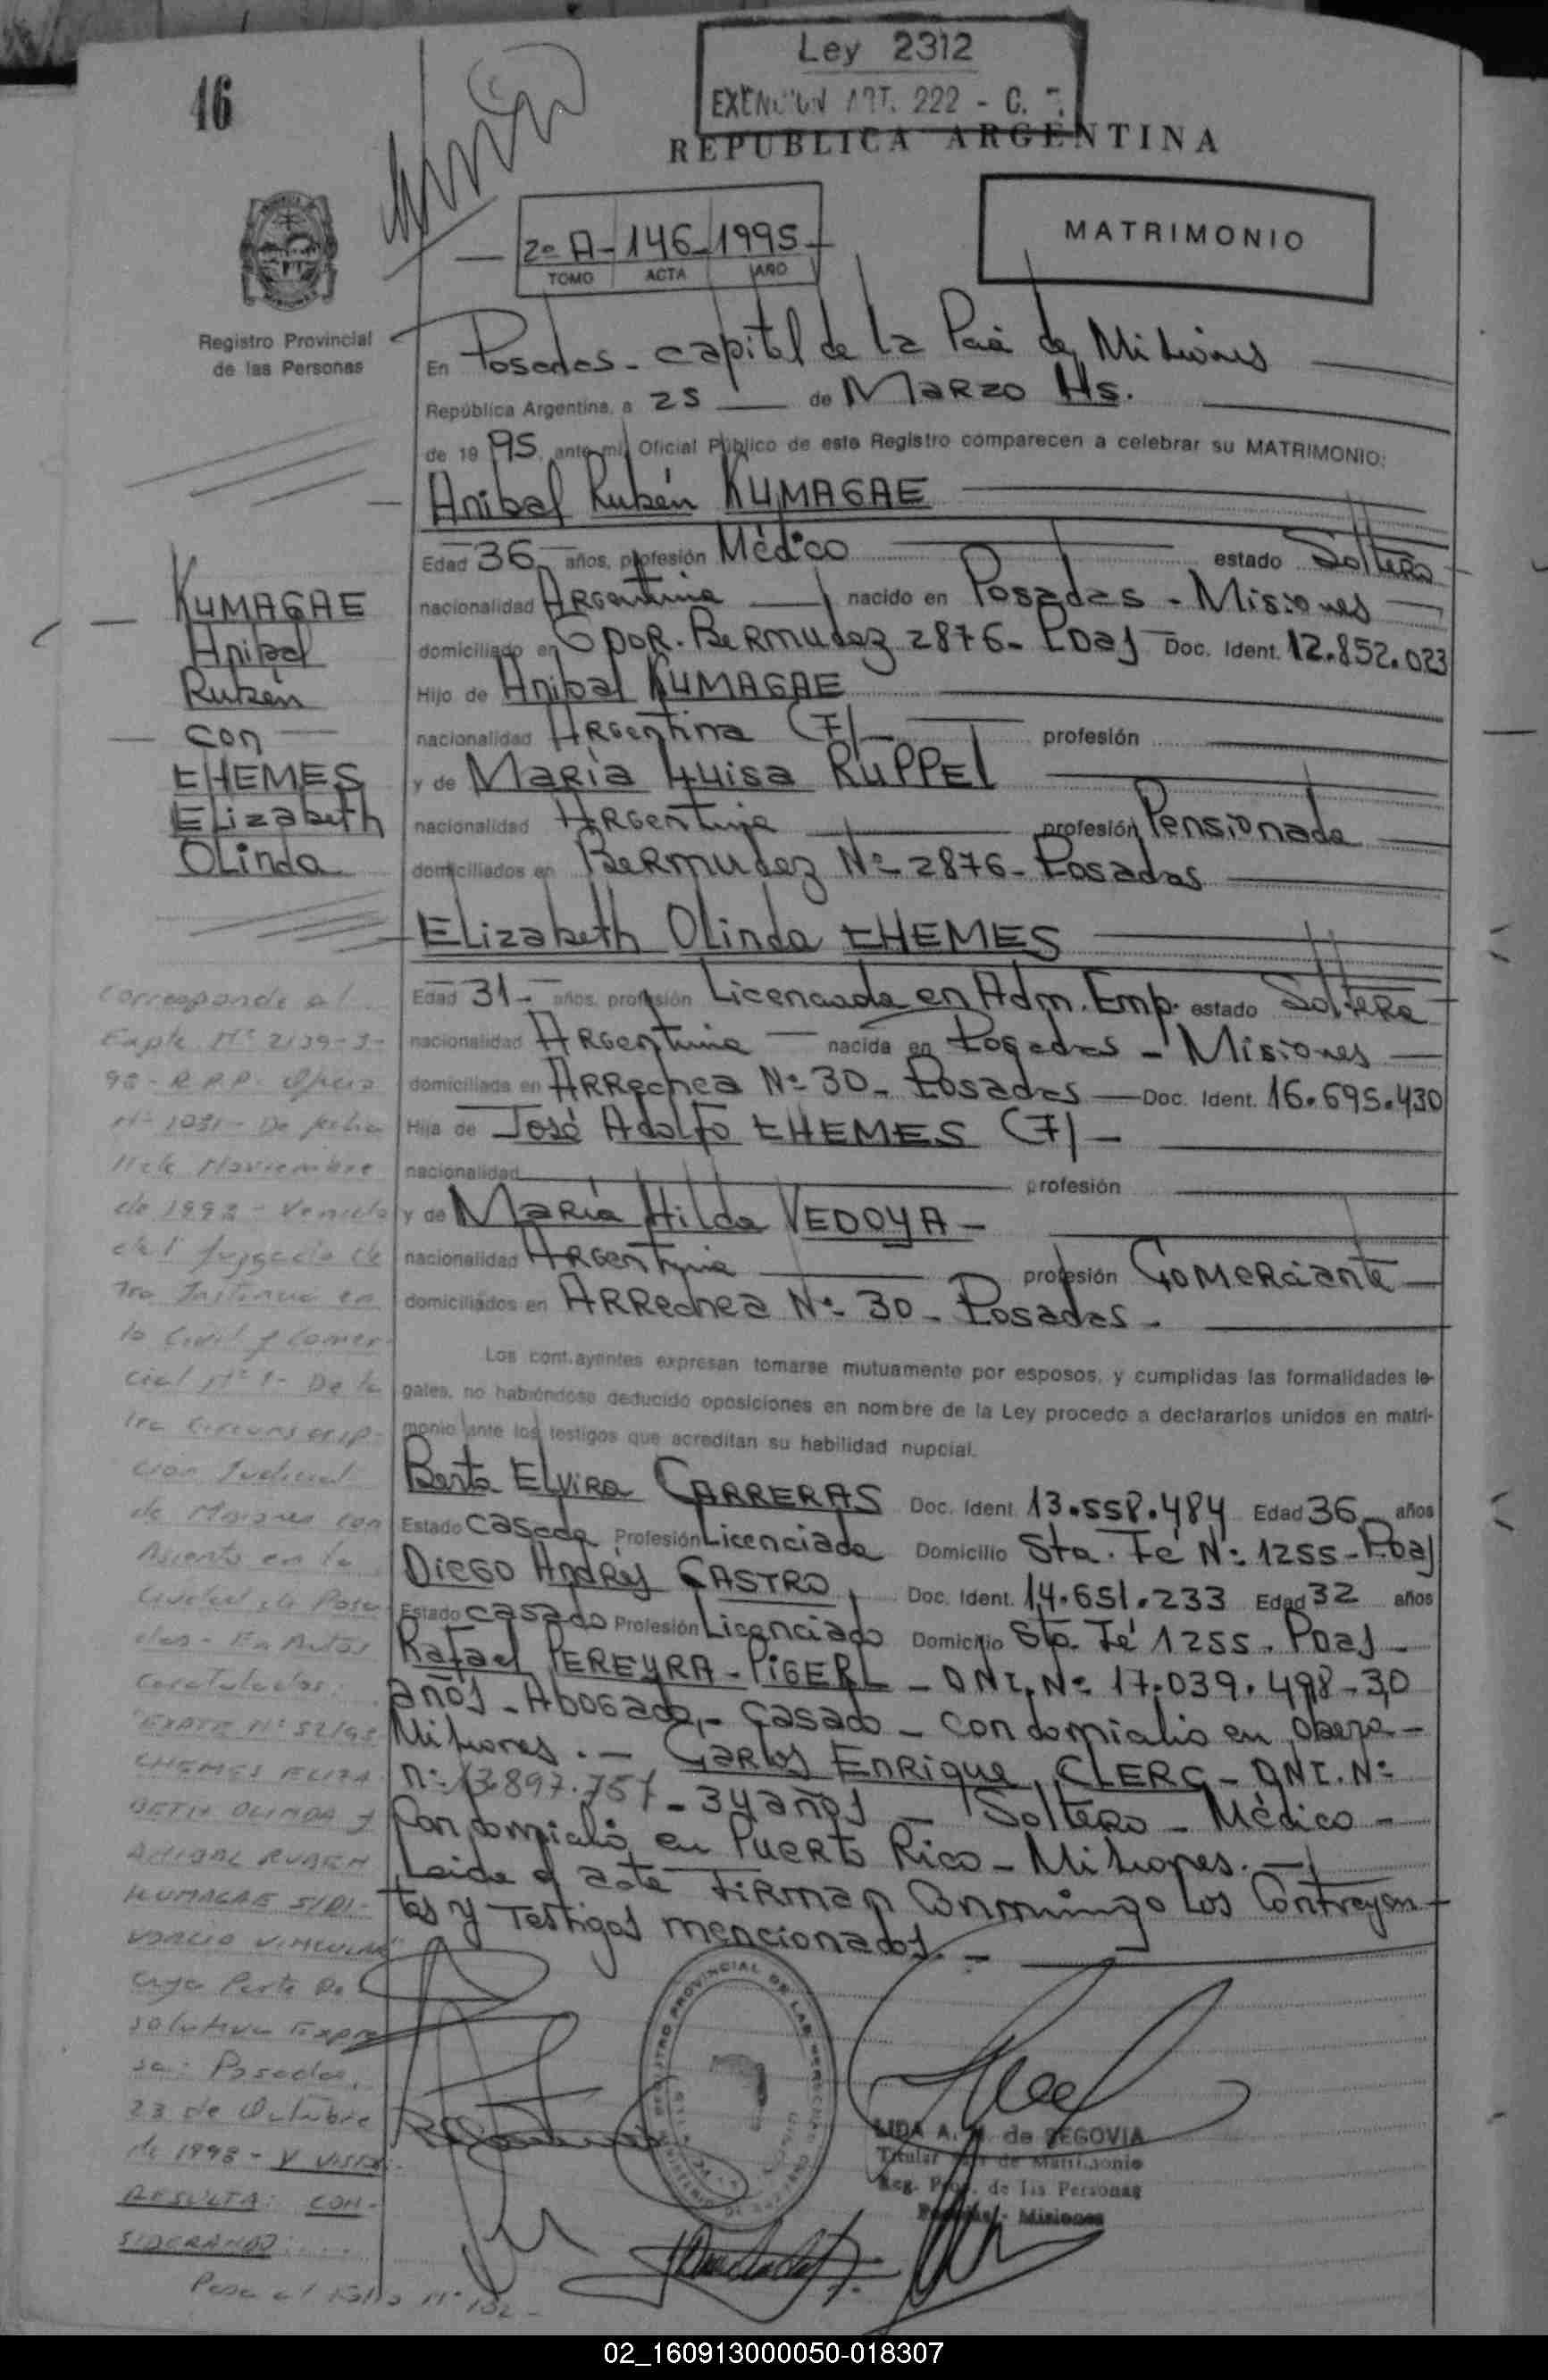 Ley 2312
EXENCION ART. 222 - C.
46
REPUBLICA ARGENTINA
MATRIMONIO
2º A - 146 - 1995
TOMO ACTA AÑO
Registro Provincial
de las Personas
En Posadas - capital de la Pcia de Misiones
República Argentina, a 25 de Marzo Hs.
de 1995, ante mi, Oficial Público de este Registro comparecen a celebrar su MATRIMONIO:
Anibal Rubén KUMAGAE
Edad 36 - años, profesión Médico estado Soltero
nacionalidad Argentina nacido en Posadas - Misiones
domiciliado en Gdor. Bermudez 2876 - Pdas Doc. Ident. 12.852.023
Hijo de Anibal KUMAGAE
nacionalidad Argentina (F) profesión
y de María Luisa RUPPEL
nacionalidad Argentina profesión Pensionada
domiciliados en Bermudez Nº 2876 - Posadas
KUMAGAE
Anibal
Rubén
con
CHEMES
Elizabeth
Olinda
Elizabeth Olinda CHEMES
Edad 31 - años, profesión Licenciada en Adm. Emp. estado Soltera
nacionalidad Argentina nacida en Posadas - Misiones
domiciliada en Arrechea Nº 30 - Posadas Doc. Ident. 16.695.430
Hija de José Adolfo CHEMES (F) -
nacionalidad profesión
y de María Hilda VEDOYA -
nacionalidad Argentina profesión Comerciante
domiciliados en Arrechea Nº 30 - Posadas -
Los contrayentes expresan tomarse mutuamente por esposos, y cumplidas las formalidades le-
gales, no habiéndose deducido oposiciones en nombre de la Ley procedo a declararlos unidos en matri-
monio ante los testigos que acreditan su habilidad nupcial.
Berta Elvira CARRERAS Doc. Ident. 13.558.484 Edad 36 - años
Estado casada Profesión Licenciada Domicilio Sta. Fé Nº 1255 - Pdas
Diego Andrés CASTRO Doc. Ident. 14.651.233 Edad 32 años
Estado casado Profesión Licenciado Domicilio Sta. Fé 1255 - Pdas -
Rafael PEREYRA - PIGERL - DNI. Nº 17.039.498 - 30
años - Abogado - Casado - con domicilio en Obera -
Misiones. - Carlos Enrique CLERC - DNI. Nº
nº 13.897.757 - 34 años - Soltero - Médico -
Con domicilio en Puerto Rico - Misiones. -
Leida el acta Firman Conmingo los Contrayen-
tes y Testigos mencionados. -
Corresponde al
Expte Nº 2139-J-
98 - R.P.P. Oficio
Nº 1031 - De fecha
11 de Noviembre
de 1998 - Venido
del Juzgado de
1ra Instancia en
lo Civil y Comer-
cial Nº 1 - De la
1ra Circunscrip-
ción Judicial
de Misiones con
Asiento en la
Ciudad de Posa-
das - En Autos
Caratulados:
"EXPTE Nº 52/98
CHEMES ELIZA-
BETH OLINDA Y
ANIBAL RUBEN
KUMAGAE S/DI-
VORCIO VINCULAR"
Cuya Parte Re-
solutiva Expre-
sa: Posadas,
23 de Octubre
de 1998 - Y VISTOS:
RESULTA: CON-
SIDERANDO: ....
Pasa al Folio Nº 132 -
REGISTRO PROVINCIAL DE LAS PERSONAS
LIDA A. de SEGOVIA
Titular de Matrimonio
Reg. Prov. de las Personas
Posadas - Misiones
02_160913000050-018307